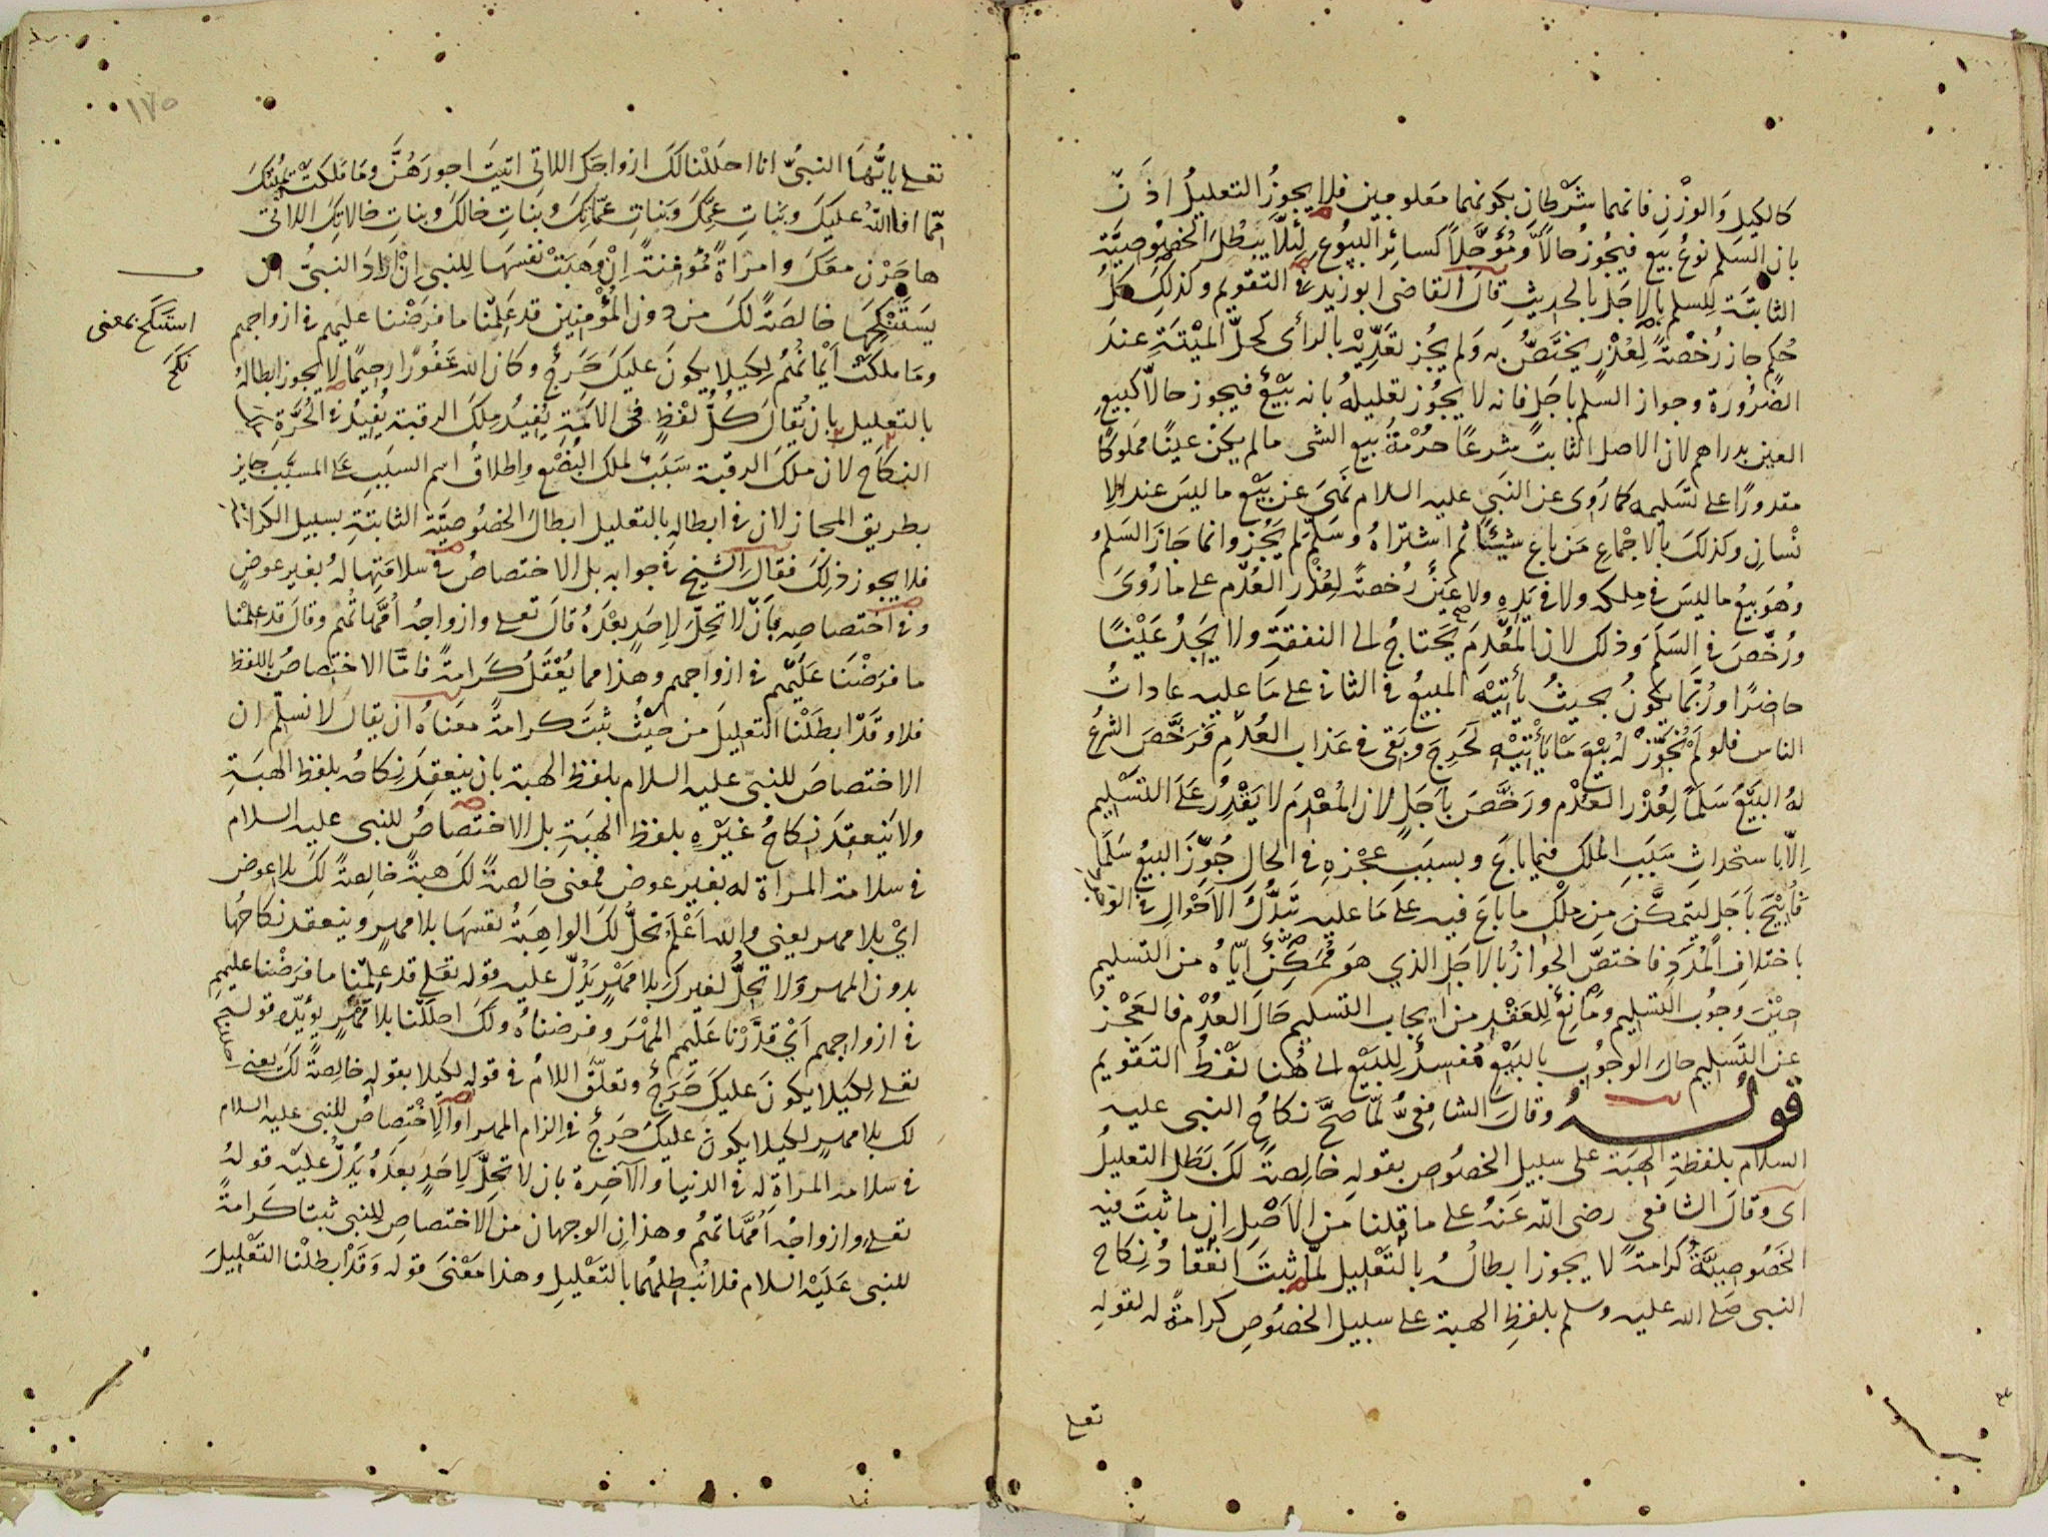 كالكيل والوزن فانهما شرطان بكونهما معلومين فلا يجوز التعليل اذنّ
بان السلم نوع بيع فيجوز حالاً ومؤجلاً كسائر البيوع لئلا يبطل الخصوصيّة
الثابتة للسلم بالاجل بالحديث قال القاضى ابو زيد في التقويم وكذلك كل
حكم جاز رخصةً لعذر يختصّ به ولم يجز تعديه بالرأى كحلّ الميتة عند
الضرورة وجواز السلم باجل فانه لا يجوز تعليله بانه بيع فيجوز حالاّ كبيع
العين بدراهم لان الاصل الثابت شرعًا حرمة بيع الشى ما لم يكن عينًا مملوكًا
مقدورًا على تسليمه كما روى عن النبى عليه السلام نهى عن بيع ما ليس عند الا
نسان وكذلك بالاجماع من باع شيئًا ثم اشتراه وسلم لم يجز وانما جاز السلم
وهو بيع ما ليس في ملكه ولا في يده ولا عينٌ رخصةً لعذر العدم على ما روى
ورخّص فى السلم وذلك لان المعدم يحتاج الى النفقة ولا يجد عينًا
حاضرًا وربّما يكون بحيث يأتيه المبيع في الثانى على ما عليه عادات
الناس فلو لم نجوّز له بيع ما يأتيه لحرج وبقى فى عذاب العدم فرخّص الشرع
له البيع سلمًا لعذر العدم ورخّص باجل لان المعدم لا يقدر على التسليم
الّا باستحداث سبب الملك فيما باع وبسبب عجزه في الحال جوّز البيع سلمًا
فأبيح باجل ليتمكّن من ملك ما باع فيه على ما عليه تبدّل الاحوال في
باختلاف المدد فاختصّ الجواز بالاجل الذي هو ممكّن ايّاه من التسليم
حين وجوب التسليم ومانع للعقد من ايجاب التسليم حال العدم فالعجز
عن التسليم حال الوجوب بالبيع مفسد للبيع الى هنا لفظ التقويم
قوله وقال الشافعىّ لمّا صحّ نكاح النبى عليه
السلام بلفظة الهبة على سبيل الخصوص بقوله خالصة لك بطل التعليل
اى وقال الشافعي رضى الله عنه على ما قلنا من الاصل ان ما ثبت فيه
الخصوصيّة كرامةً لا يجوز ابطاله بالتعليل لمّا ثبت انعقاد نكاح
النبى صلى الله عليه وسلم بلفظ الهبة على سبيل الخصوص كرامةً له لقوله
تعلى
١٧٥
تعلى يايّها النبىّ انا احللنا لك ازواجك اللاتى اتيت اجورهنّ وما ملكت يمينك
ممّا افاء الله عليك وبنات عمّك وبنات عمّاتك وبنات خالك وبنات خالاتك اللاتى
هاجرن معك وامراةً مؤمنةً ان وهبت نفسها للنبى ان اراد النبىّ ان
يستنكحها خالصةً لك من دون المؤمنين قد علمنا ما فرضنا عليهم في ازواجهم
وما ملكت ايمانهم لكيلا يكون عليك حرج وكان الله غفورًا رحيمًا لا يجوز ابطاله
بالتعليل بان يقال كل لفظٍ فى الامة يفيد ملك الرقبة يفيد فى الحرّة
النكاح لان ملك الرقبة سبب لملك البضع واطلاق اسم السبب على المسبّب جايز
بطريق المجاز لان فى ابطاله بالتعليل ابطال الخصوصيّة الثابتة بسبيل الكرامة
فلا يجوز ذلك فقال الشيخ في جوابه بل الاختصاص فى سلامتها له بغير عوضٍ
وفي اختصاصه بأن لا تحلّ لاحد بعده قال تعلى وازواجه امّهاتهم وقال قد علمنا
ما فرضنا عليهم فى ازواجهم وهذا مما يعقل كرامةً فامّا الاختصاص باللفظ
فلا وقد ابطلنا التعليل من حيث ثبت كرامةً معناه ان يقال لا نسلّم ان
الاختصاص للنبىّ عليه السلام بلفظ الهبة بان ينعقد نكاحه بلفظ الهبة
ولا ينعقد نكاح غيره بلفظ الهبة بل الاختصاص للنبى عليه السلام
فى سلامة المراة له بغير عوض فمعنى خالصةً لك هبةً خالصةً لك بلا عوض
ايْ بلا مهر يعنى والله اعلم تحلّ لك الواهبة نفسها بلا مهرٍ وينعقد نكاحها
بدون المهر ولا تحلّ لغيرك بلا مهرٍ يدلّ عليه قوله تعلى قد علمنا ما فرضنا عليهم
في ازواجهم اىْ قدّرنا عليهم المهر وفرضناه ولك احللنا بلا مهرٍ يؤيّده قوله
تعلى لكيلا يكون عليك حرجٌ وتعلّق اللام فى قوله لكيلا بقوله خالصةً لك يعنى
لك بلا مهرٍ لكيلا يكون عليك حرج فى الزام المهر او الاختصاص للنبى عليه السلام
فى سلامة المراة له في الدنيا والآخرة بان لا تحلّ لاحدٍ بعده يدلّ عليه قوله
تعلى وازواجه امّهاتهم وهذان الوجهان من الاختصاص للنبى ثبتا كرامةً
للنبى عليه السلام فلا نبطلهما بالتعليل وهذا معنى قوله وقد ابطلنا التعليل
استنكح بمعنى
نكح